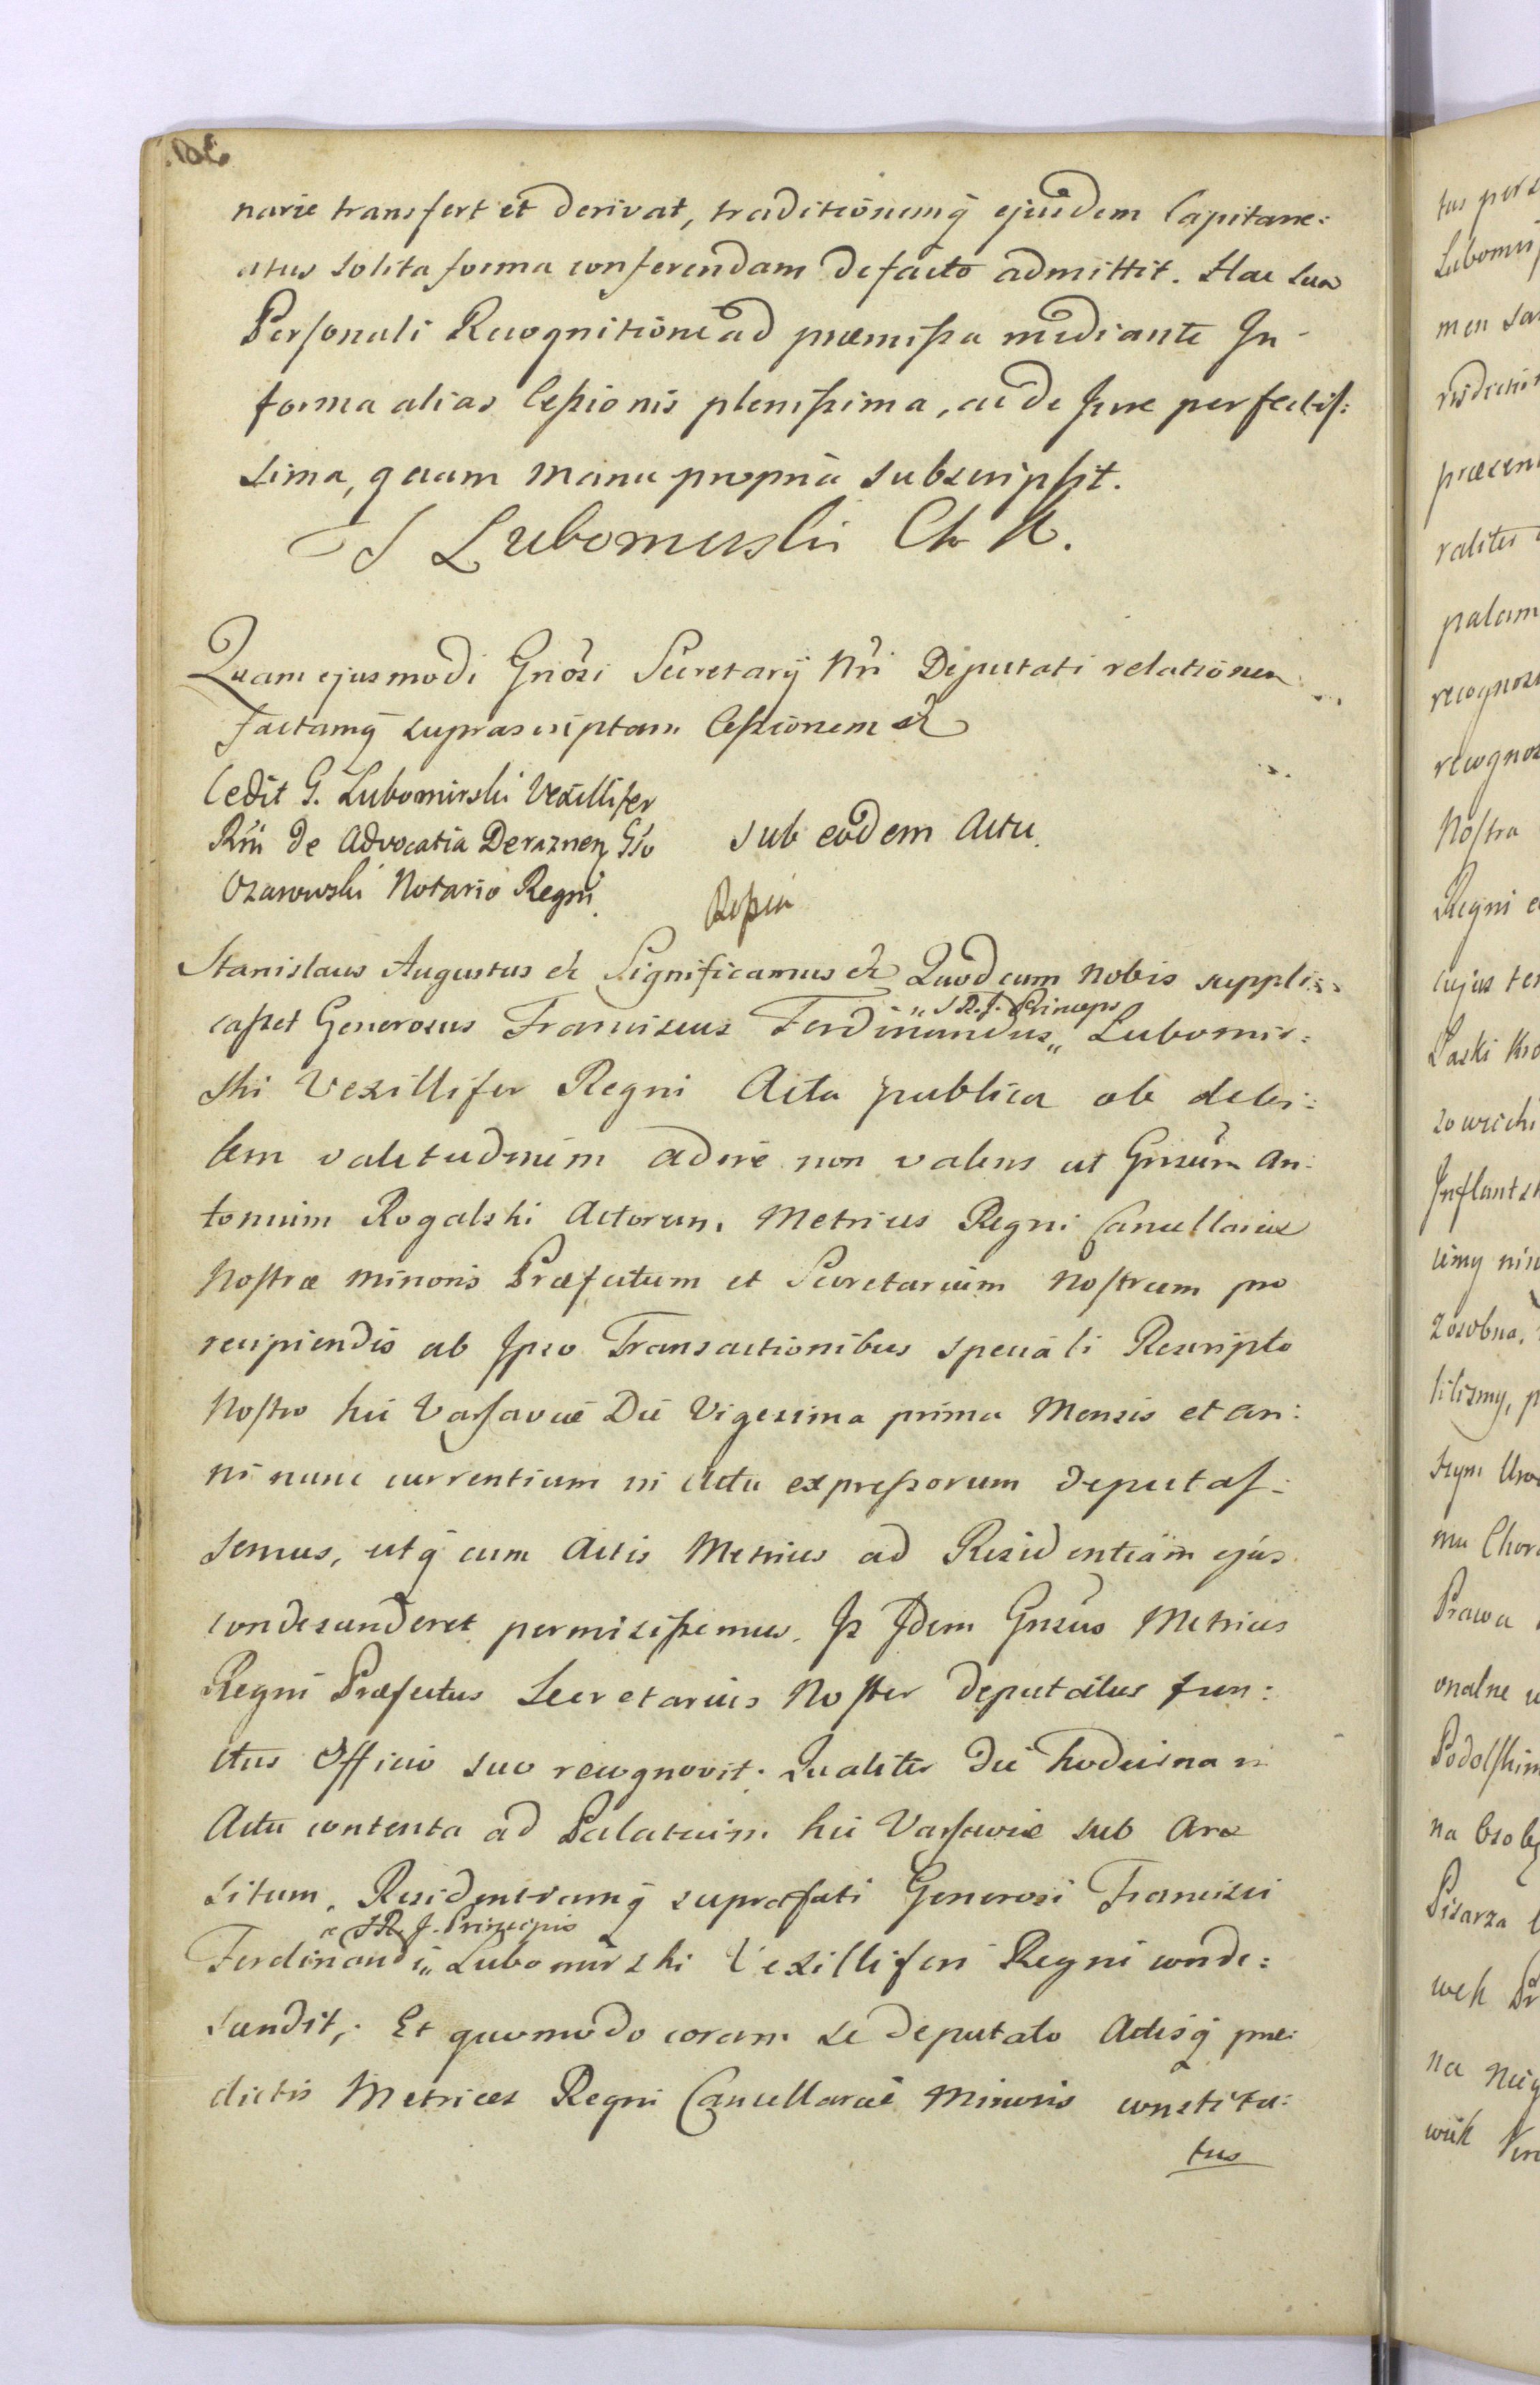 narie transfert et derivat, traditionemq̃ ejusdem Capitane:
atus solita forma conferendam de facto admittit. Hac sua
Personali Recognitione ad præmissa mediante In
forma alias Cessionis plenissima, ac de Jure perfectis:
sima, quam manu propria subscripsit.
Lubomirski Ch K.
Quam ejusmodi Gñosi Secretarij Nri Deputati relationem
factamq̃ suprascriptam Cessionem &
Cedit G. Lubomirski Vexillifer
Rñi de Advocatia Deraznen Gso
Ożarowski Notario Regni.
sub eodem Actu.
Stanislaus Augustus & Significamus & Quod cum nobis suppli:
casset Generosus Franciscus Ferdinandus „ Lubomir:
„ S. R. J. Princeps
ski Vexillifer Regni Acta publica ob debi:
lem valetudinem adire non valens ut Gnsum An:
tonium Rogalski Actorum Metrices Regni Cancellariæ
Nostræ minoris Præfectum et Secretarium Nostrum pro
recipiendis ab Ipso Transactionibus speciali Rescripto
Nostro hic Varsaviæ Die Vigesima prima Mensis et an:
ni nunc currentium in Actu expressorum deputas:
semus, utq̃ cum Actis Metrices ad Residentiam ejus
condescenderet permisissemus. Is Idem Gnsus Metrices
Regni Præfectus Secretarius Noster deputatus fun:
ctus Officio suo recognovit. Qualiter Die hodierna in
Actu contenta ad Palatium hic Varsaviæ sub Arce
situm, Residentiamq̃ suprafati Generosi Francisci
„ S. R. J. Principis
Ferdinandi „ Lubomirski Vexilliferi Regni conde:
scendit; Et quomodo coram se deputato Actisq̃ præ:
dictis Metrices Regni Cancellariæ Minoris constitu:
tus